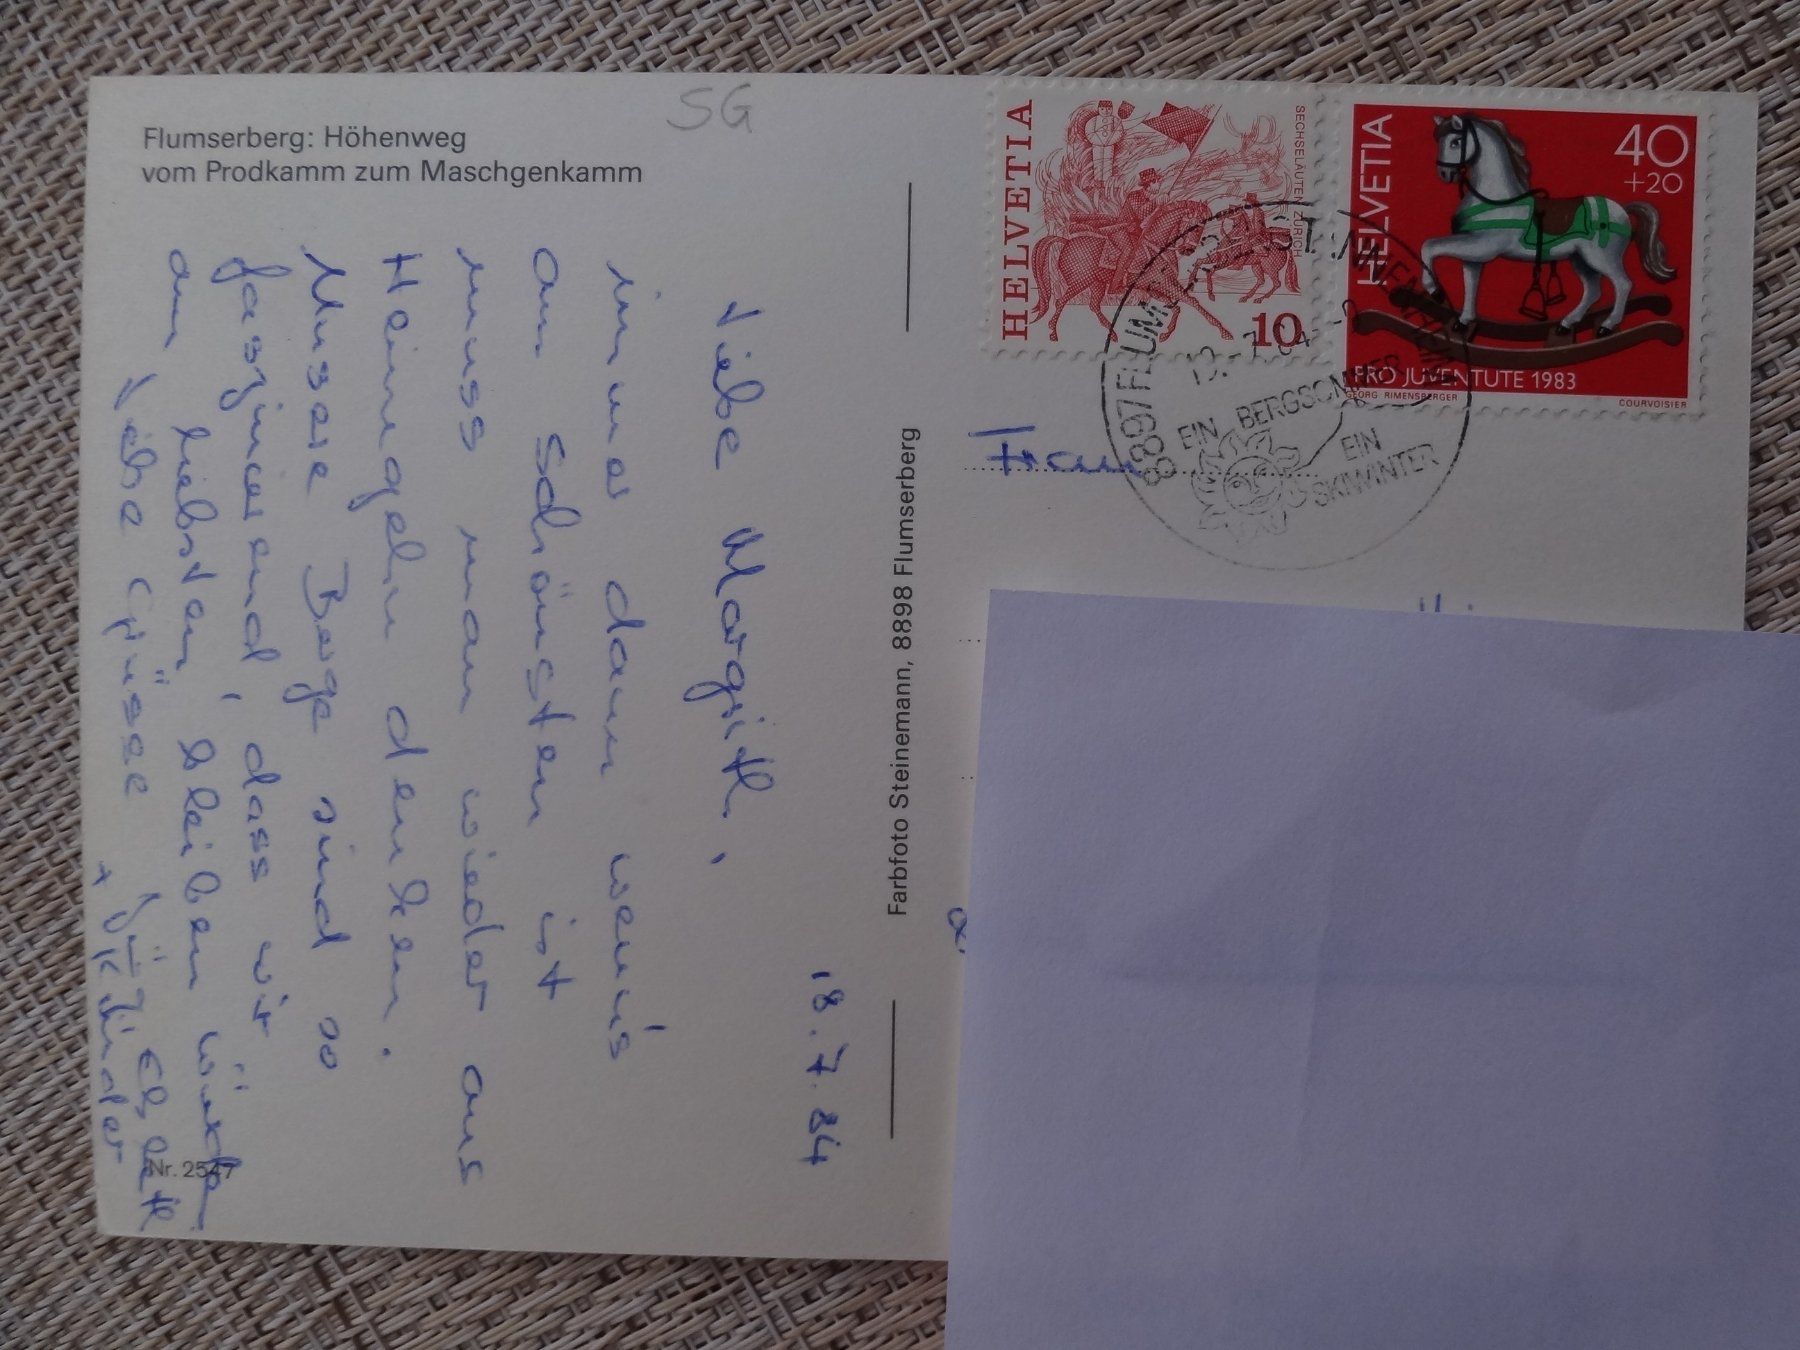 SG
Flumserberg: Höhenweg
vom Prodkamm zum Maschgenkamm
18.7.84
Liebe Margrith,
immer dann wenn's
am schönsten ist
muss man wieder ans
Heimgehn denken.
Unsere Berge sind so
faszinierend, dass wir
am liebsten bleiben würden.
Liebe Grüsse
+ Kinder
Nr. 2547
Farbfoto Steinemann, 8898 Flumserberg
HELVETIA
SECHSELÄUTEN ZÜRICH
10
HELVETIA
40
+20
PRO JUVENTUTE 1983
GEORG RIMENSBERGER
COURVOISIER
8897 FLUMSERBERG TANNENHEIM
EIN BERGSOMMER
EIN
SKIWINTER
Frau